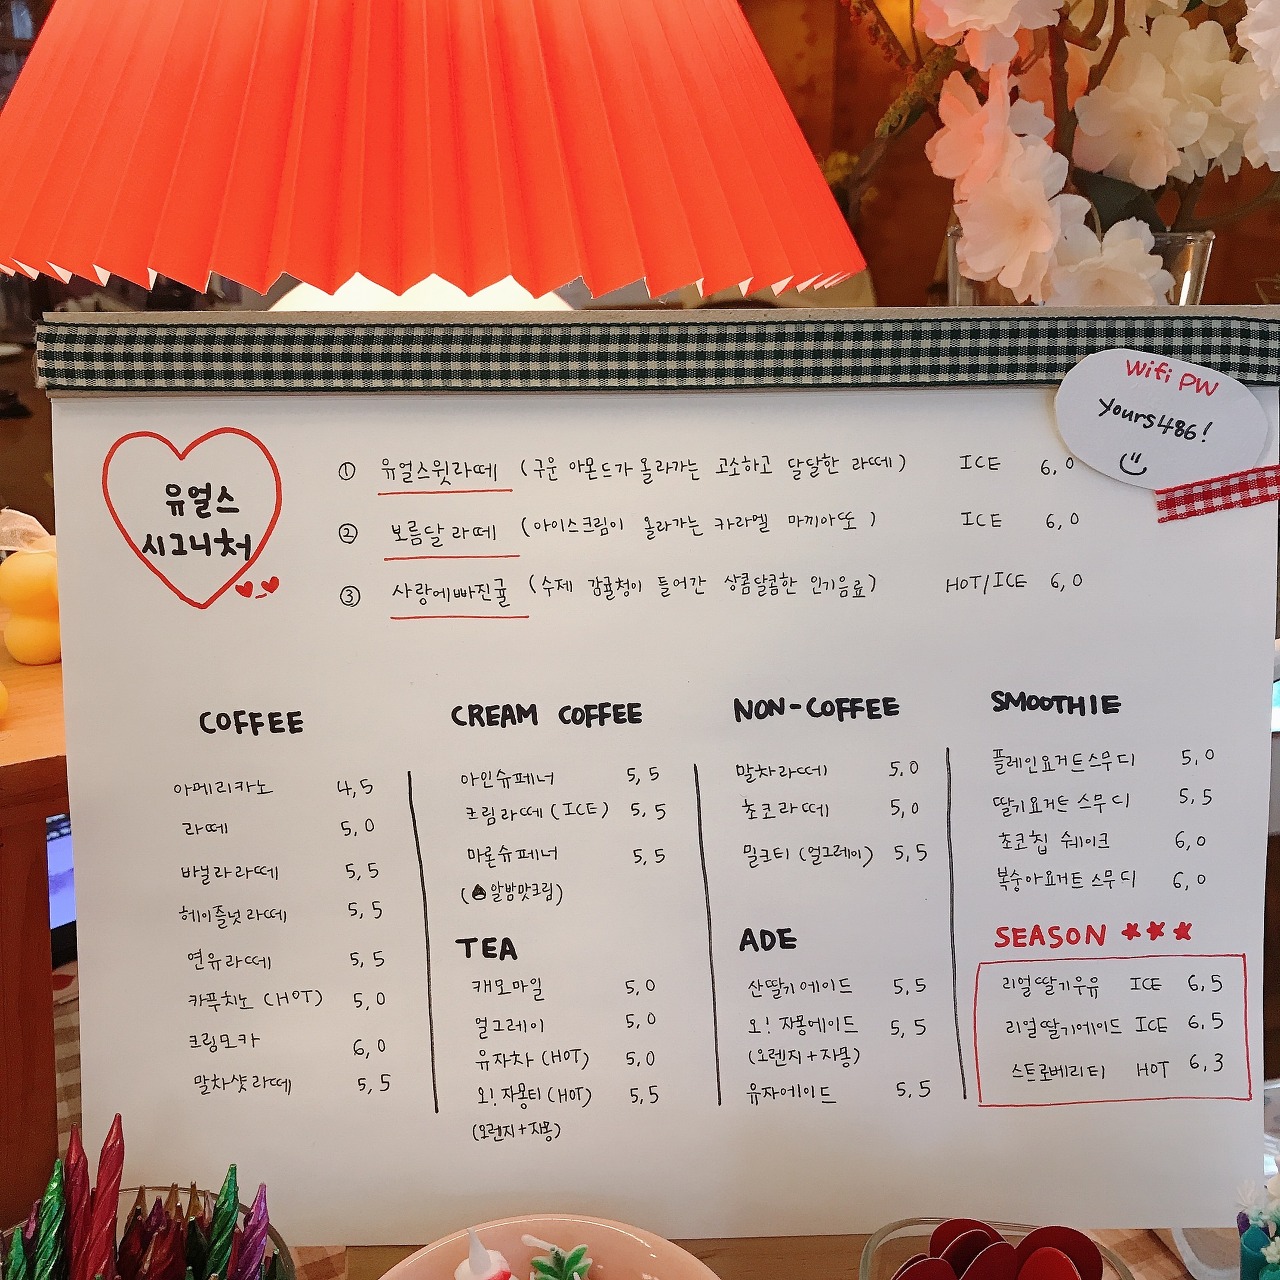 Wifi PW
yours486!
유얼스
시그니처
① 유얼스윗라떼 (구운 아몬드가 올라가는 고소하고 달달한 라떼) ICE 6,0
② 보름달라떼 (아이스크림이 올라가는 카라멜 마끼아또) ICE 6,0
③ 사랑에빠진귤 (수제 감귤청이 들어간 상콤달콤한 인기음료) HOT/ICE 6,0
COFFEE
아메리카노 4,5
라떼 5,0
바닐라라떼 5,5
헤이즐넛라떼 5,5
연유라떼 5,5
카푸치노 (HOT) 5,0
크림모카 6,0
말차샷라떼 5,5
CREAM COFFEE
아인슈페너 5,5
크림라떼 (ICE) 5,5
마론슈페너 5,5
(알밤맛크림)
TEA
캐모마일 5,0
얼그레이 5,0
유자차 (HOT) 5,0
오! 자몽티 (HOT) 5,5
(오렌지+자몽)
NON-COFFEE
말차라떼 5,0
초코라떼 5,0
밀크티 (얼그레이) 5,5
ADE
산딸기에이드 5,5
오! 자몽에이드 5,5
(오렌지+자몽)
유자에이드 5,5
SMOOTHIE
플레인요거트스무디 5,0
딸기요거트스무디 5,5
초코칩 쉐이크 6,0
복숭아요거트스무디 6,0
SEASON
리얼딸기우유 ICE 6,5
리얼딸기에이드 ICE 6,5
스트로베리티 HOT 6,3